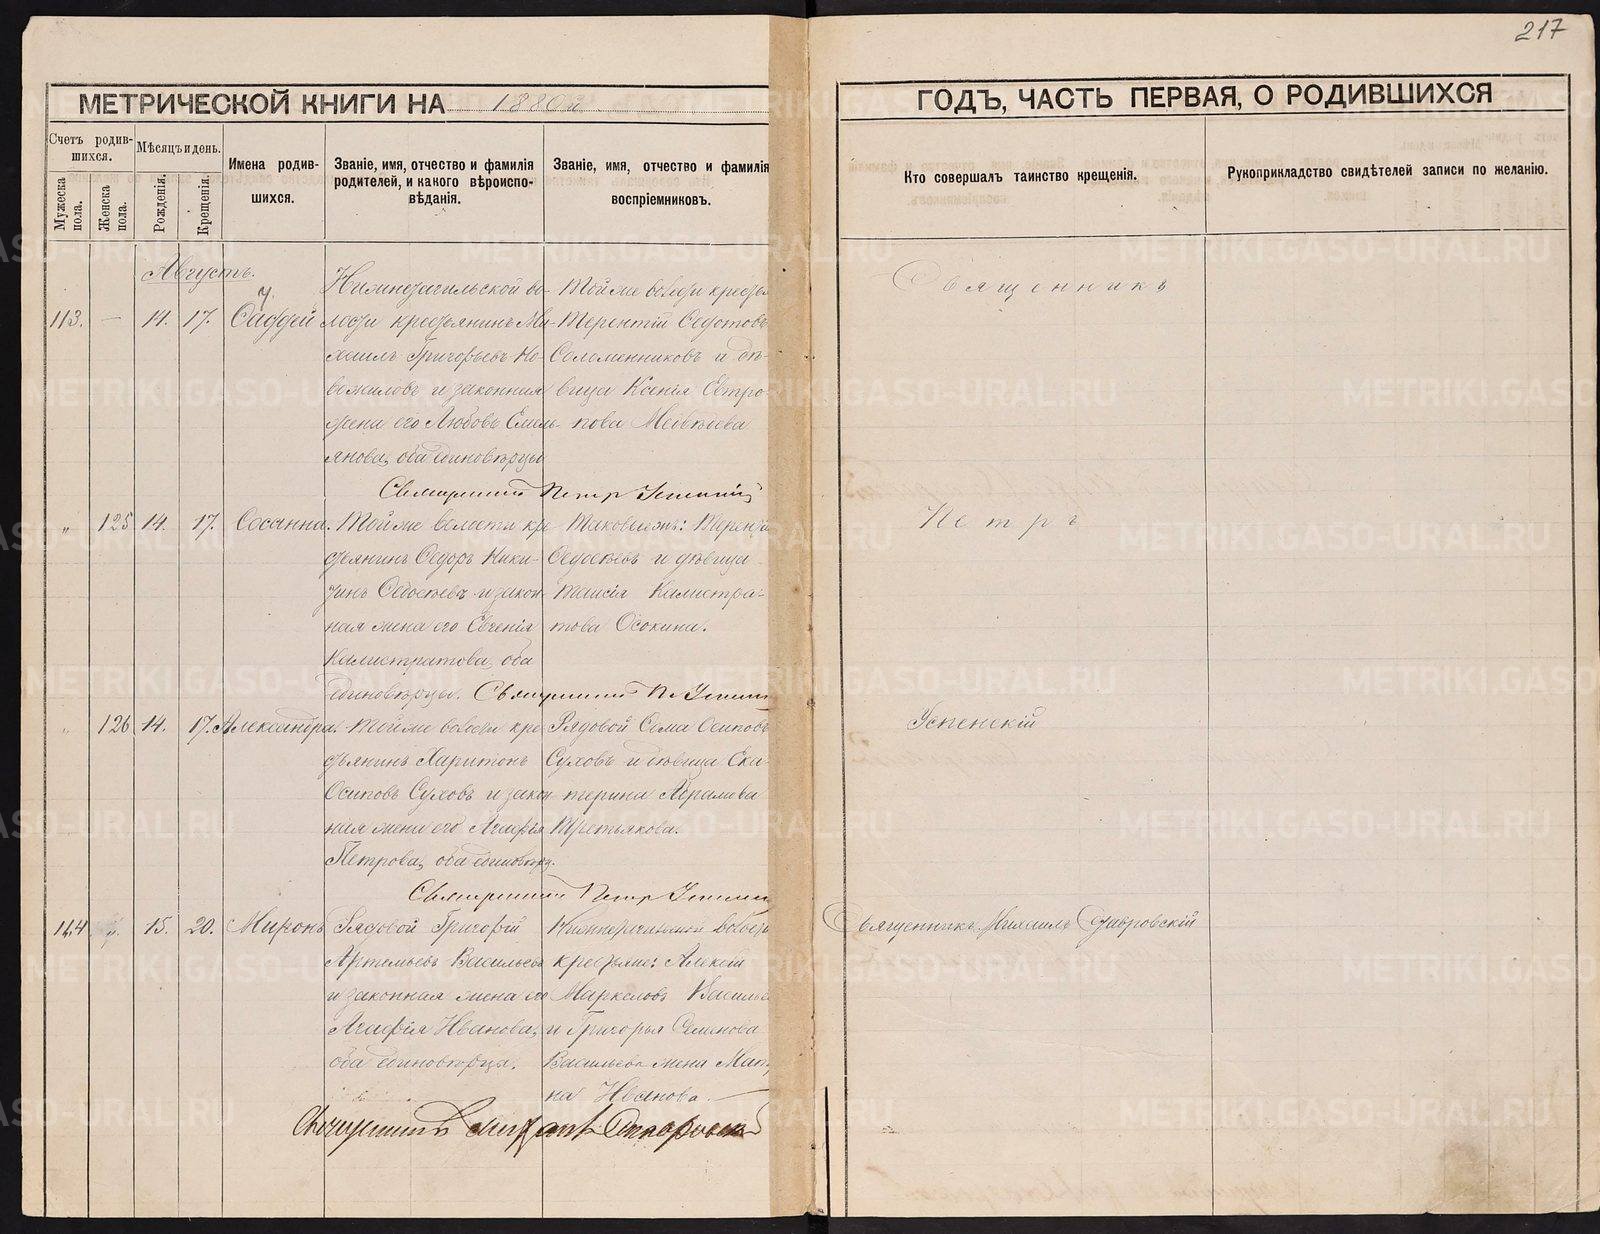 217
МЕТРИЧЕСКОЙ КНИГИ НА 1880й
ГОДЪ, ЧАСТЬ ПЕРВАЯ, О РОДИВШИХСЯ
Счетъ родив-
шихся.
Мужеска пола.
Женска пола.
Мѣсяцъ и день.
Рожденія.
Крещенія.
Имена родив-
шихся.
Званіе, имя, отчество и фамилія
родителей, и какого вѣроиспо-
вѣданія.
Званіе, имя, отчество и фамилія
воспріемниковъ.
Кто совершалъ таинство крещенія.
Рукоприкладство свидѣтелей записи по желанію.
Августъ.
113. — 14. 17. Фаддей
Нижнетагильской во-
лости крестьянинъ Ми-
хаилъ Григорьевъ Но-
вожиловъ и законная
жена его Любовь Емель-
янова, оба единовѣрцы
Той же волости крестья
Терентій Федотовъ
Соломенниковъ и дѣ-
вица Ксенія Евтро-
пова Медвѣдева
Священникъ Петръ Успенскій
" 125 14. 17. Сосанна.
Той же волости кре-
стьянинъ Федоръ Ники-
тинъ Федосѣевъ и закон-
ная жена его Евгенія
Калистратова, оба
единовѣрцы.
Таковыежъ: Терентій
Федосѣевъ и дѣвица
Таисія Калистра-
това Осокина.
Священникъ П. Успен
" 126 14. 17. Александра.
Той же волости кре
стьянинъ Харитонъ
Осиповъ Суховъ и закон
ная жена его Агафія
Петрова, оба единовѣрц.
Рядовой Сема Осиповъ
Суховъ и дѣвица Ека-
терина
Третьякова.
Священникъ Петръ Успенск
Священникъ
Петръ
Успенскій
114 " 15. 20. Миронъ
Рядовой Григорій
Артемьевъ Васильевъ
и законная жена его
Агафія Иванова,
оба единовѣрцы.
Нижнетагильской волости
крестьяне: Алексій
Маркеловъ Василье
и Григорья Семенова
Васильева жена Мат
на Иванова.
Священникъ Михаилъ Ставровскій
Священникъ Михаилъ Ставровскій
METRIKI.GASO-URAL.RU